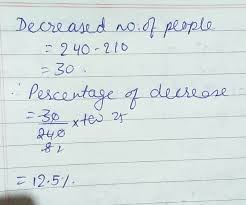 Decreased no. of people
= 240 - 210
= 30.
∴ Percentage of decrease
= 30/240 × 100 25
8 2
= 12.5%